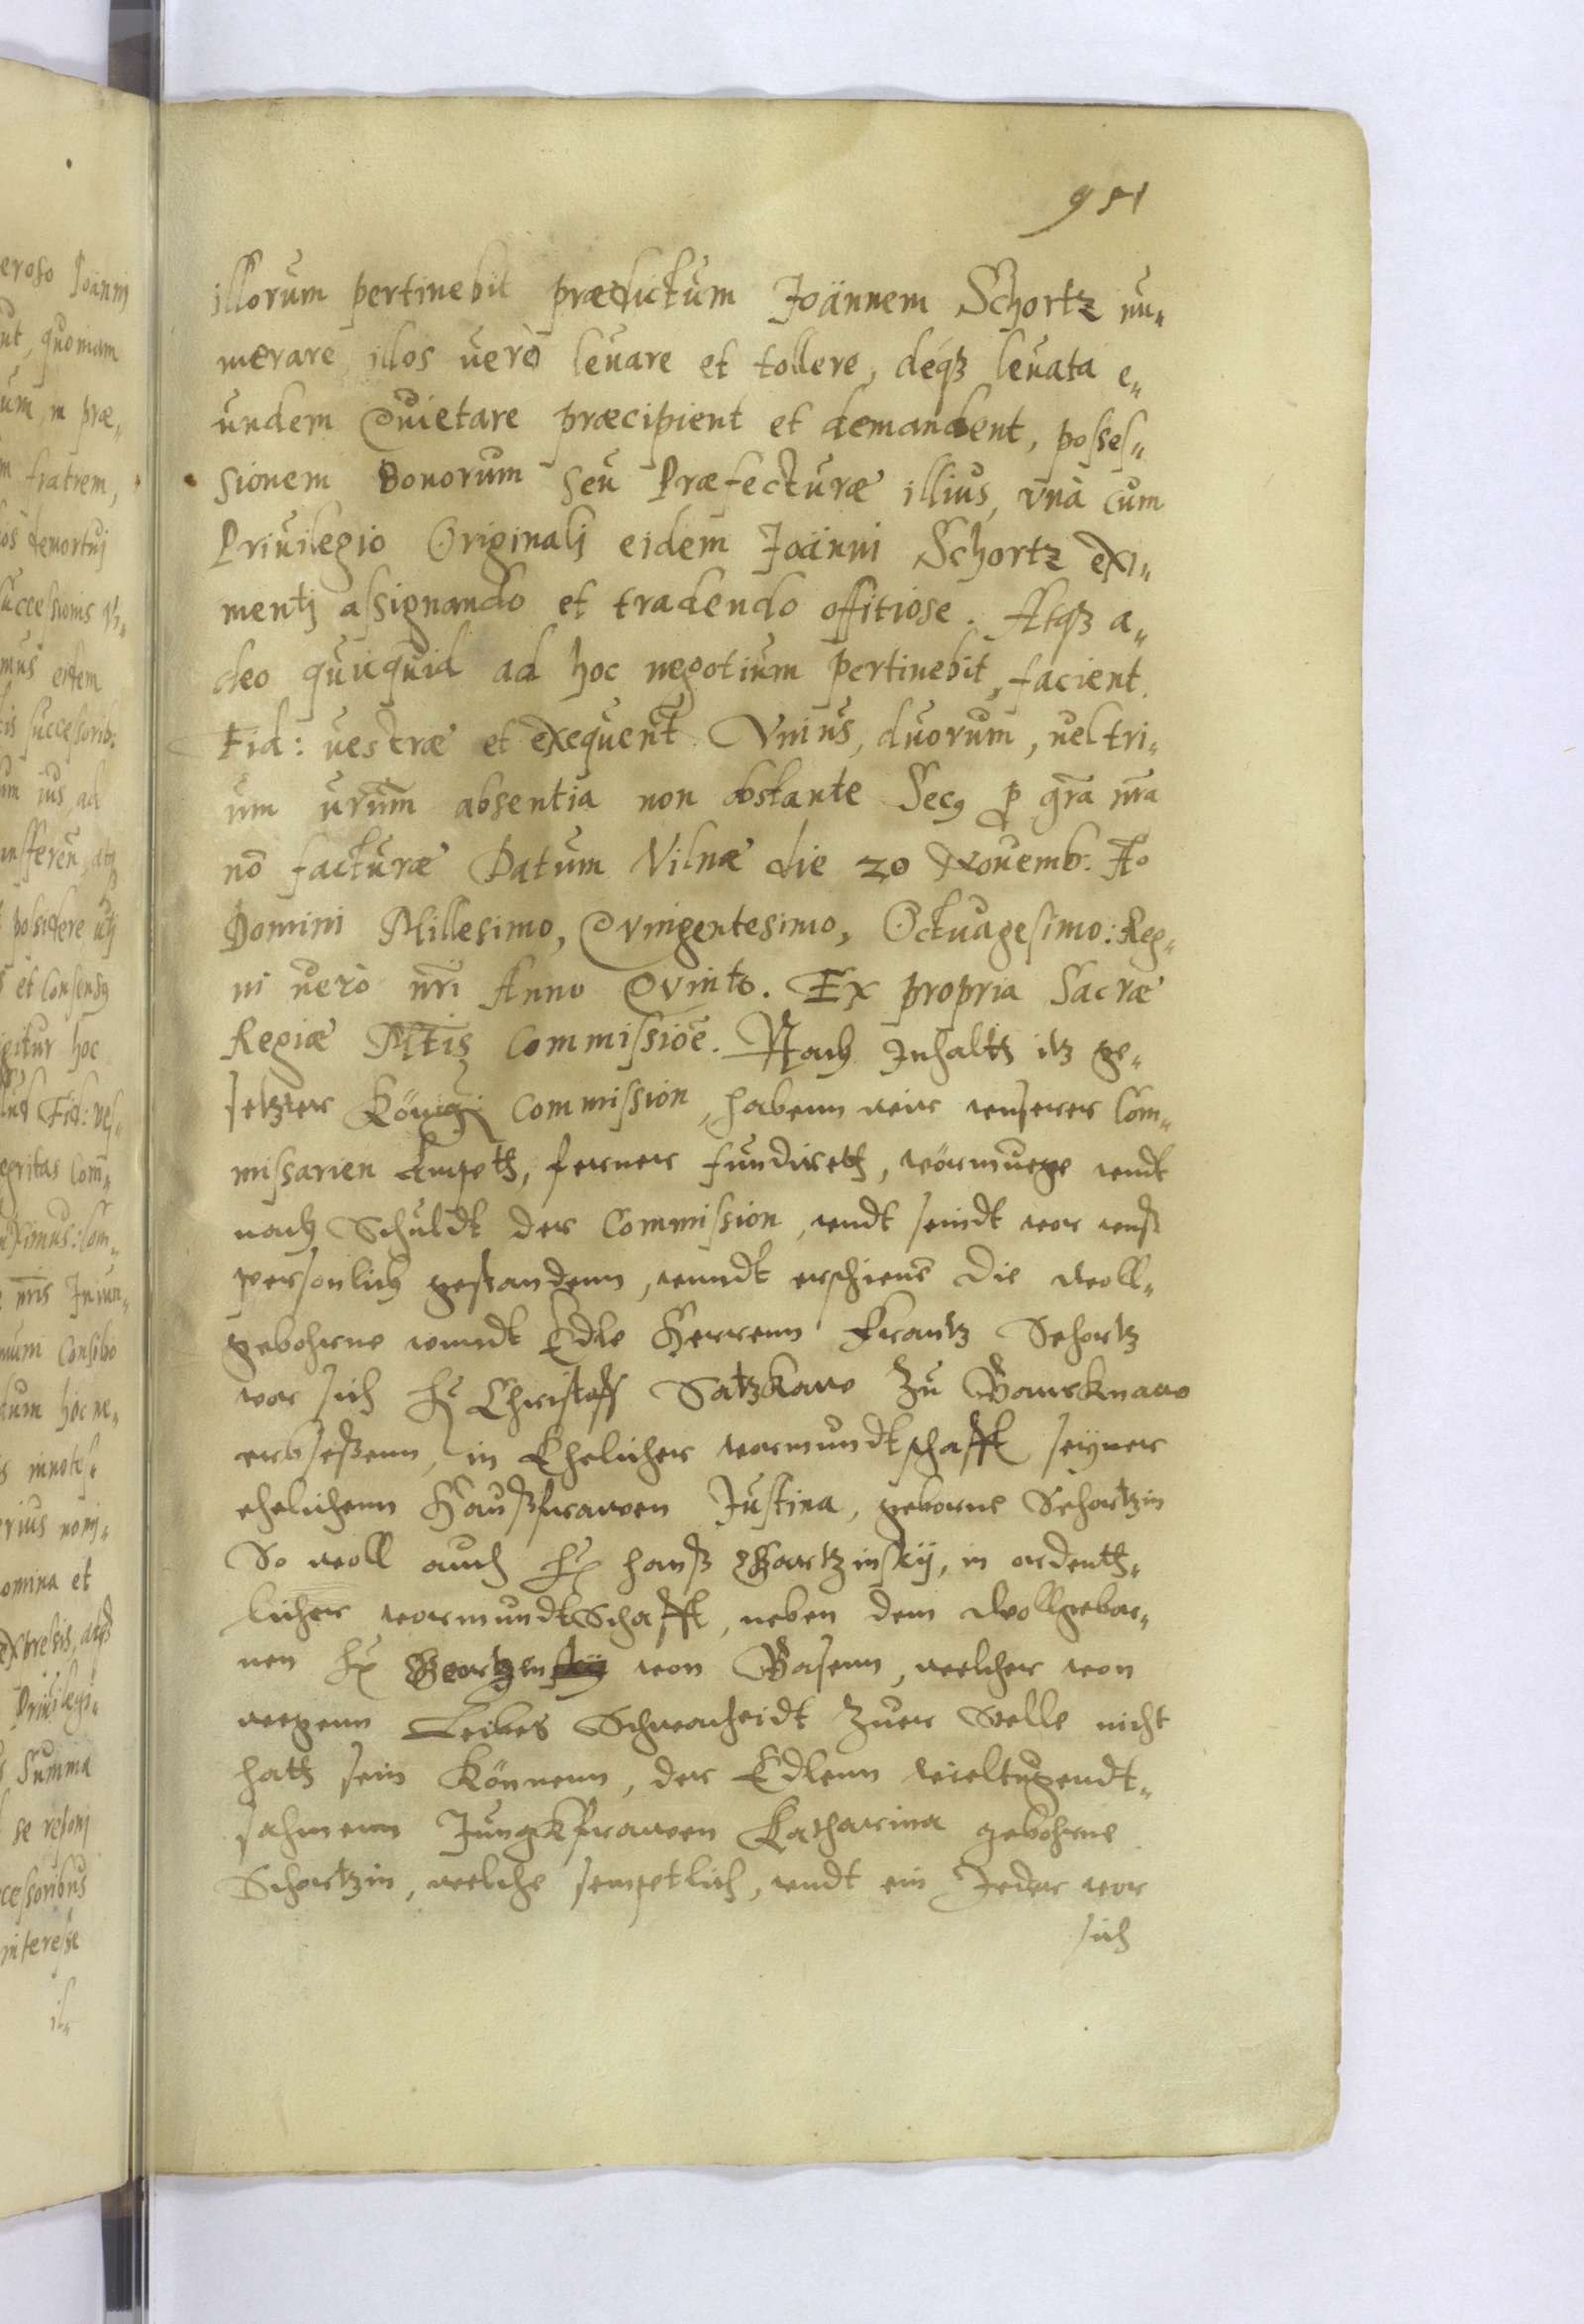 951
illorum pertinebit prædictum Joännem Schortz nu„
merare illos uerò leuare et tollere, déqȝ leuata e„
undem Quietare præcipient et demandent, posses„
sionem Bonorum seu Præfecturæ illius, vnà cum
Priuilegio Originalj eidem Joänni Schortz exi„
mentj assignando et tradendo offitiose. Atqȝ a„
deo quicquid ad hoc negotium pertinebit, facient
Fid: uestræ et exequent Vnius, duorum, uel tri„
um urum absentia non obstante Secꝯ p gra nra
nō facturæ Datum Vilnæ die 20 Nouemb: Aº
Domini Millesimo, Qvingentesimo, Octuagesimo: Reg„
ni uerò nri Anno Qvinto. Ex propria Sacræ
Regiæ Mtis Commissiōe. Nach Inhaltz itz ge„
setzter Königꝭ Commission, habenn wir unserer Com„
missarien Ampth, ferner fundireth, vörmuege undt
nach Schuldt der Commission, undt seindt vor unß
personlich gestandenn, unndt erschienē Die Woll„
gebohrne unndt Edle Herrenn Frantz Schortz
vor sich Hꝰ Christoff Satzkaw Zu Bawrknaw
erbseßenn, in Ehelicher vormundtschafft seyner
ehelichenn Haußfrawen Justina, geborne Schortzin
So woll auch Hꝰ Hanß Gartzinskij, in ordenth„
licher vormundtschafft, neben dem Wollgebor„
nen Hꝰ von Basenn, welcher von
wegenn Leibes Schwacheidt Zuer Stelle nicht
hatt sein Können, der Edlenn vieltugendt„
sahmenn Jungkfrawen Katharina gebohrne
Schortzin, welche semptlich, undt ein Jeder vor
sich